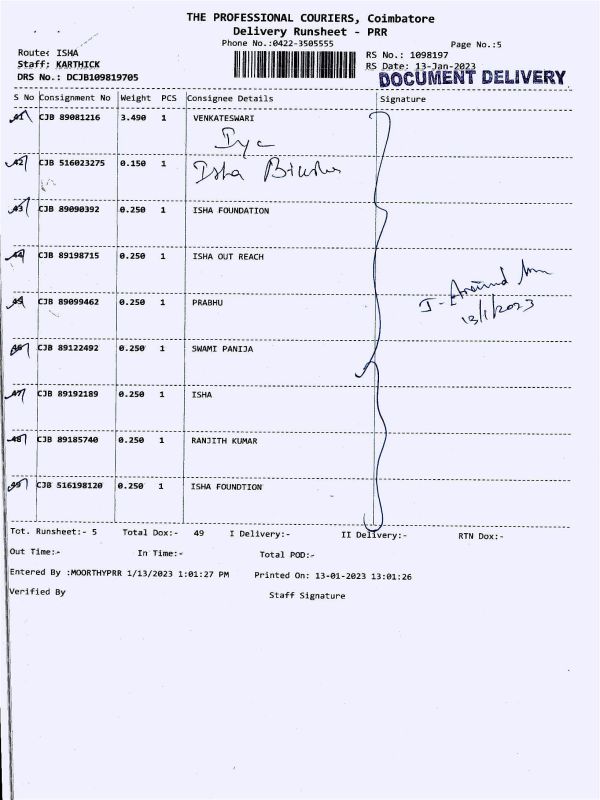 THE PROFESSIONAL COURIERS, Coimbatore
Delivery Runsheet - PRR
Phone No.:0422-3505555
Page No.:5
Route: ISHA
RS No.: 1098197
Staff: KARTHICK
RS Date: 13-Jan-2023
DRS No.: DCJB109819705
DOCUMENT DELIVERY
S No Consignment No Weight PCS Consignee Details Signature
41 CJB 89081216 3.490 1 VENKATESWARI
42 CJB 516023275 0.150 1 Isha
43 CJB 89090392 0.250 1 ISHA FOUNDATION
44 CJB 89198715 0.250 1 ISHA OUT REACH
45 CJB 89099462 0.250 1 PRABHU
13/1/2023
46 CJB 89122492 0.250 1 SWAMI PANIJA
47 CJB 89192189 0.250 1 ISHA
48 CJB 89185740 0.250 1 RANJITH KUMAR
49 CJB 516198120 0.250 1 ISHA FOUNDTION
Tot. Runsheet:- 5 Total Dox:- 49 I Delivery:- II Delivery:- RTN Dox:-
Out Time:- In Time:- Total POD:-
Entered By :MOORTHYPRR 1/13/2023 1:01:27 PM Printed On: 13-01-2023 13:01:26
Verified By Staff Signature